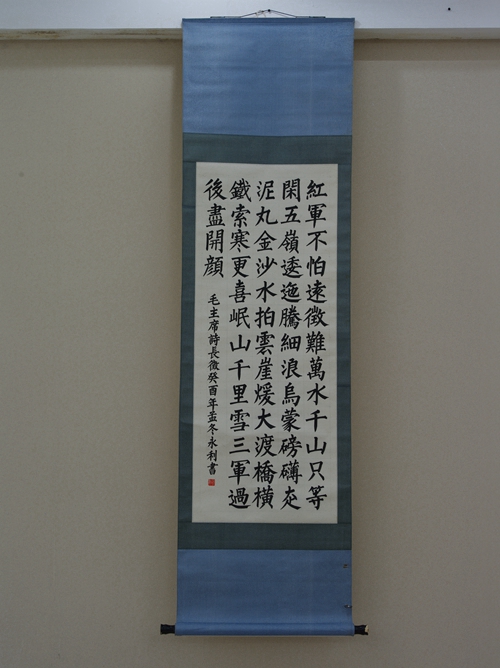 紅軍不怕遠徵難萬水千山只等
閑五嶺逶迤騰細浪烏蒙磅礴走
泥丸金沙水拍雲崖煖大渡橋橫
鐵索寒更喜岷山千里雪三軍過
後盡開顔
毛主席詩長徵癸酉年孟冬永利書